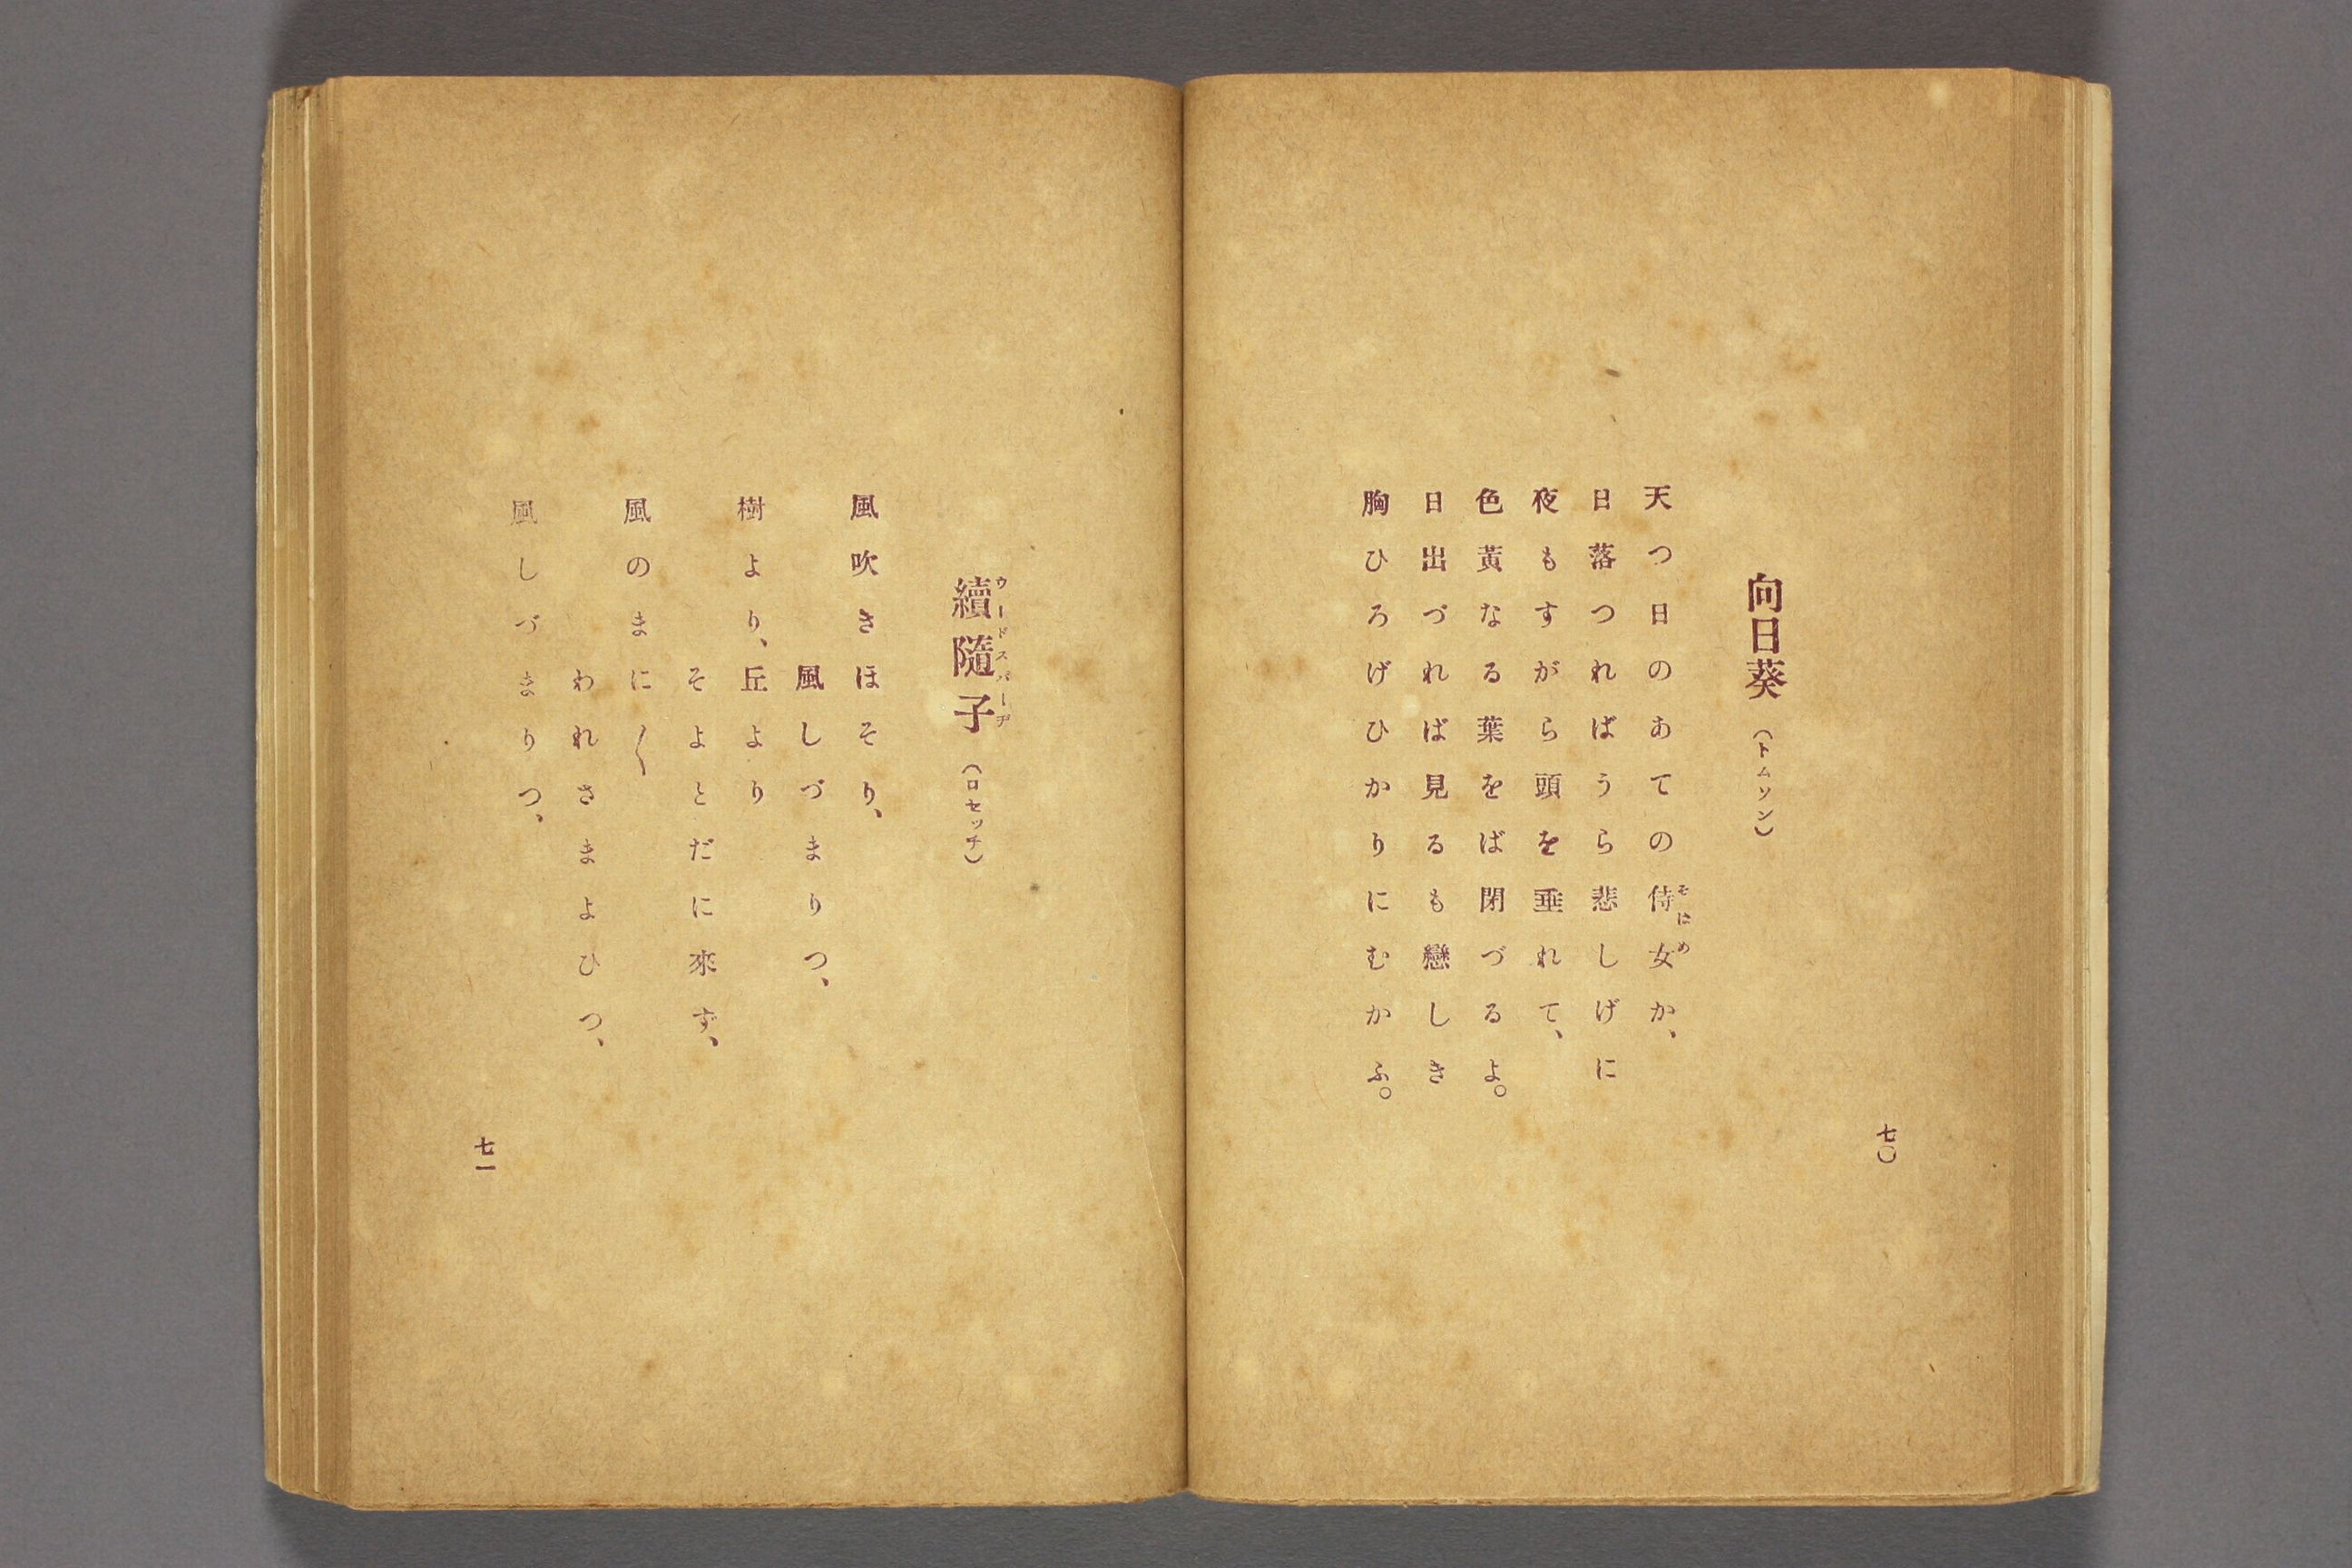 七〇
向日葵（トムソン）
天つ日のあての侍女か、
そばめ
日落つればうら悲しげに
夜もすがら頭を垂れて、
色黃なる葉をば閉づるよ。
日出づれば見るも戀しき
胸ひろげひかりにむかふ。
續隨子（ロセッチ）
ウードスパーヂ
風吹きほそり、
風しづまりつ、
樹より、丘より
そよとだに來ず、
風のまに〳〵
われさまよひつ、
風しづまりつ、
七一